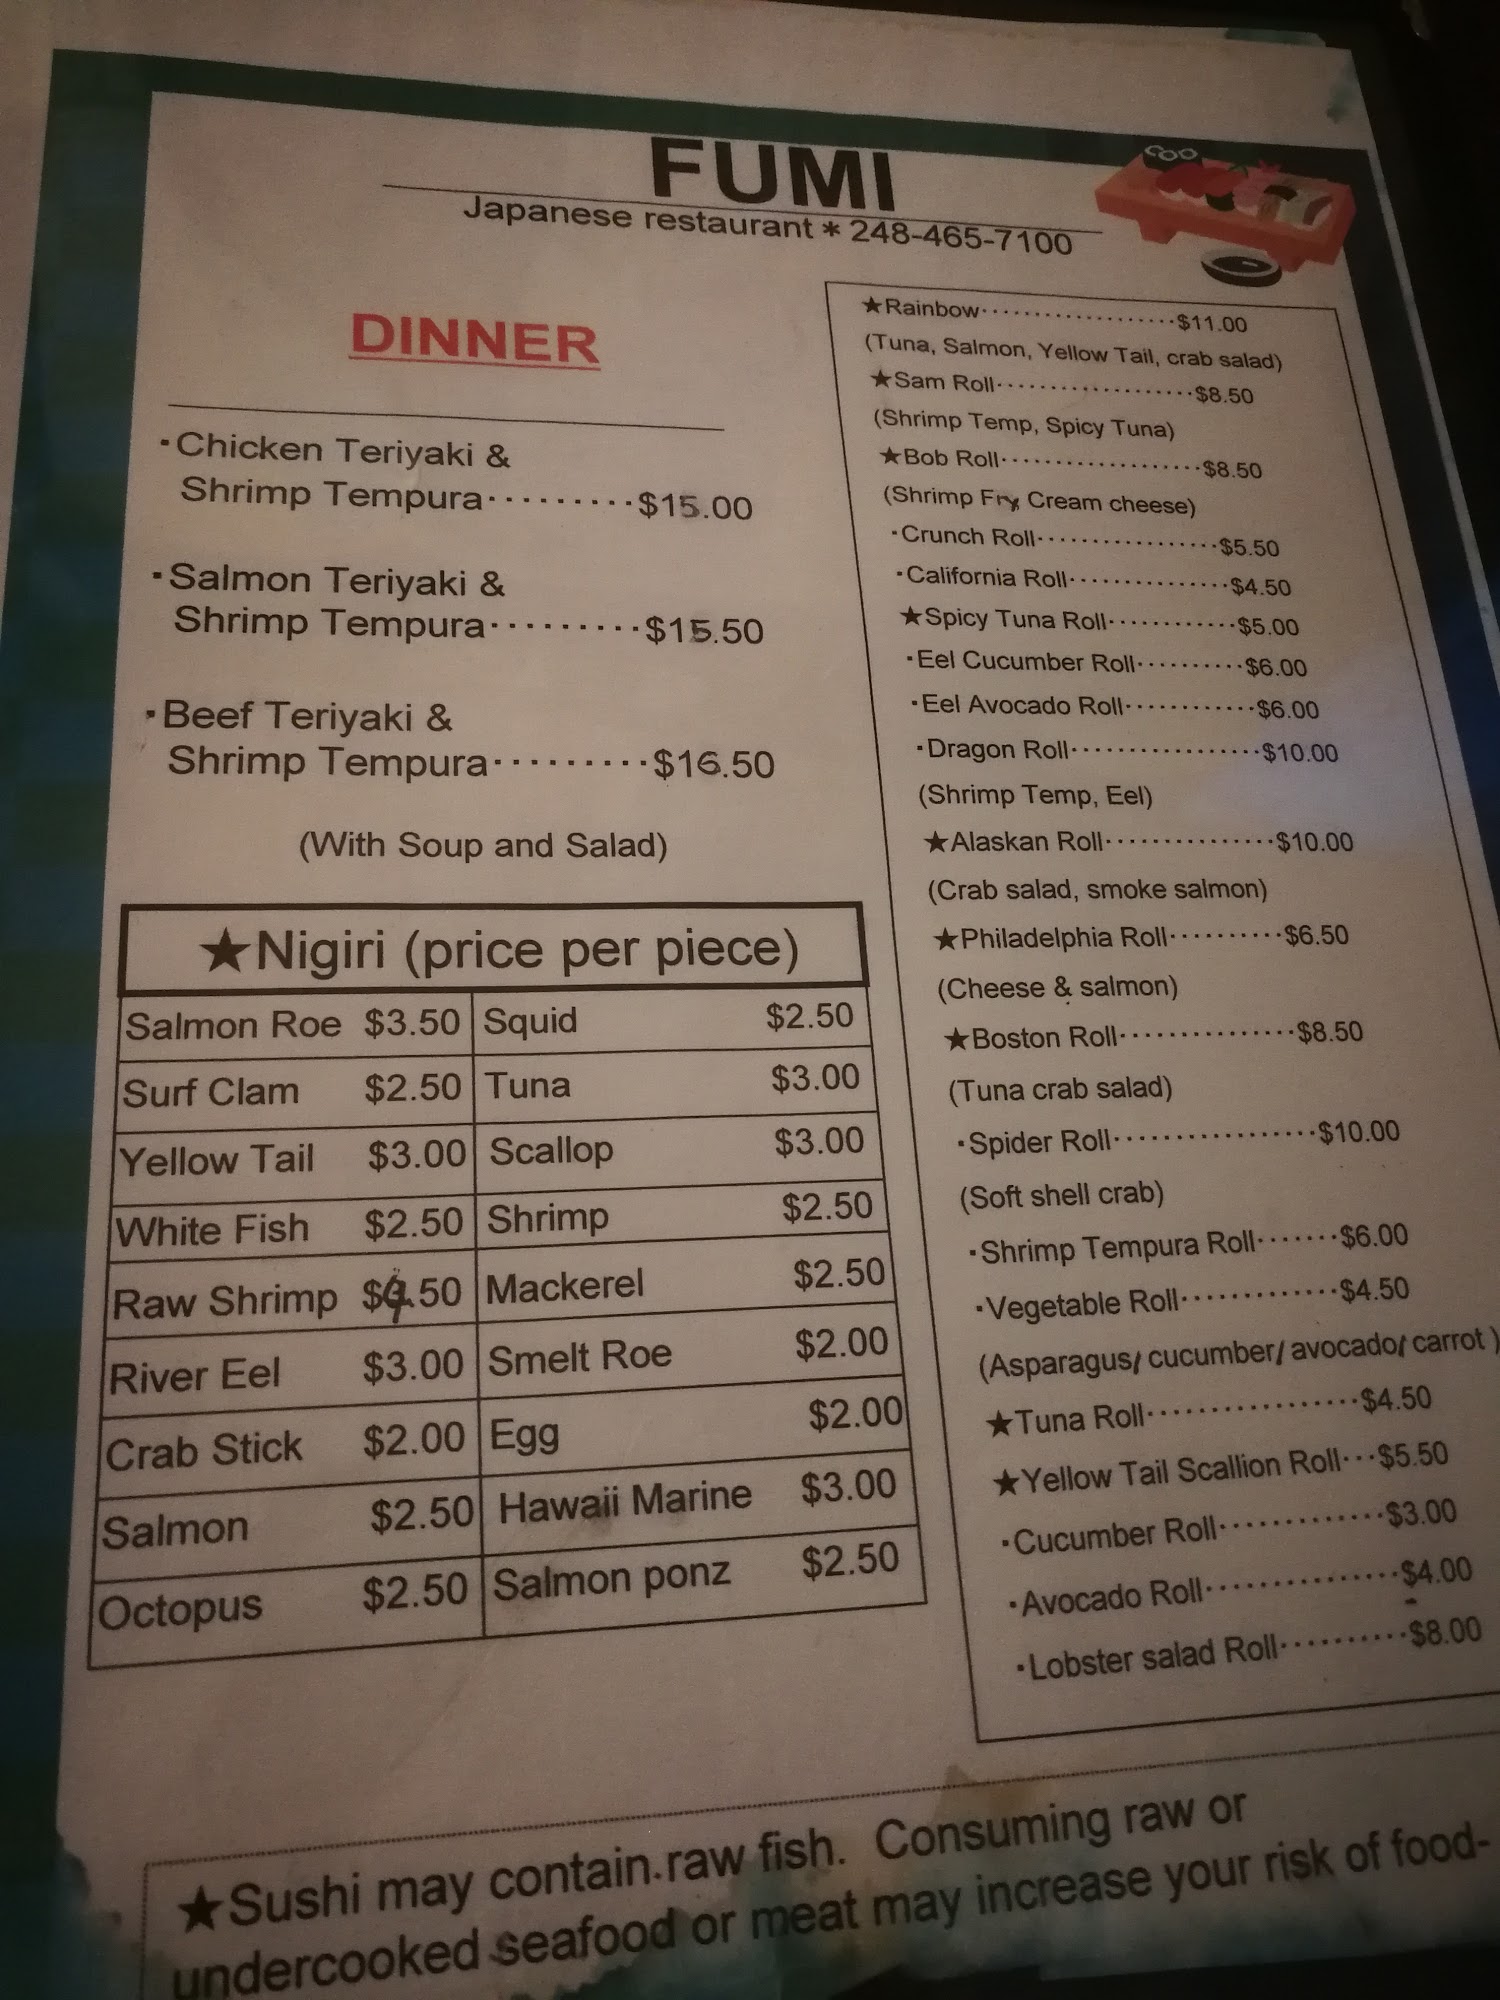 FUMI
Japanese restaurant * 248-465-7100
DINNER
·Chicken Teriyaki &
Shrimp Tempura·········$15.00
·Salmon Teriyaki &
Shrimp Tempura·········$15.50
·Beef Teriyaki &
Shrimp Tempura·········$16.50
(With Soup and Salad)
★Nigiri (price per piece)
Salmon Roe $3.50 Squid $2.50
Surf Clam $2.50 Tuna $3.00
Yellow Tail $3.00 Scallop $3.00
White Fish $2.50 Shrimp $2.50
Raw Shrimp $4.50 Mackerel $2.50
River Eel $3.00 Smelt Roe $2.00
Crab Stick $2.00 Egg $2.00
Salmon $2.50 Hawaii Marine $3.00
Octopus $2.50 Salmon ponz $2.50
★Rainbow····················$11.00
(Tuna, Salmon, Yellow Tail, crab salad)
★Sam Roll···················$8.50
(Shrimp Temp, Spicy Tuna)
★Bob Roll···················$8.50
(Shrimp Fry Cream cheese)
·Crunch Roll·················$5.50
·California Roll···············$4.50
★Spicy Tuna Roll············$5.00
·Eel Cucumber Roll··········$6.00
·Eel Avocado Roll············$6.00
·Dragon Roll··················$10.00
(Shrimp Temp, Eel)
★Alaskan Roll···············$10.00
(Crab salad, smoke salmon)
★Philadelphia Roll··········$6.50
(Cheese & salmon)
★Boston Roll···············$8.50
(Tuna crab salad)
·Spider Roll·················$10.00
(Soft shell crab)
·Shrimp Tempura Roll·······$6.00
·Vegetable Roll·············$4.50
(Asparagus/ cucumber/ avocado/ carrot )
★Tuna Roll·················$4.50
★Yellow Tail Scallion Roll···$5.50
·Cucumber Roll·············$3.00
·Avocado Roll···············$4.00
·Lobster salad Roll··········$8.00
★Sushi may contain raw fish. Consuming raw or
undercooked seafood or meat may increase your risk of food-